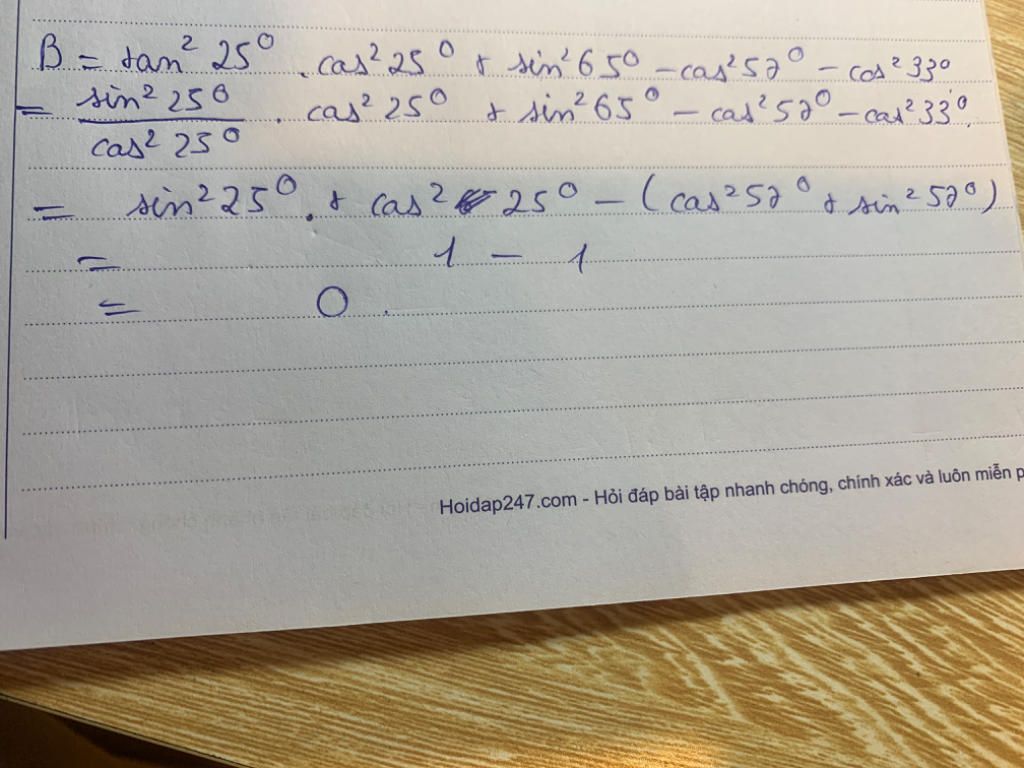 B = tan² 25⁰ . cos² 25⁰ + sin² 65⁰ − cos² 57⁰ − cos² 33⁰
= sin² 25⁰ / cos² 25⁰ . cos² 25⁰ + sin² 65⁰ − cos² 57⁰ − cos² 33⁰.
= sin² 25⁰ + cos² 25⁰ − (cos² 57⁰ + sin² 57⁰)
= 1 − 1
= 0.
Hoidap247.com - Hỏi đáp bài tập nhanh chóng, chính xác và luôn miễn p